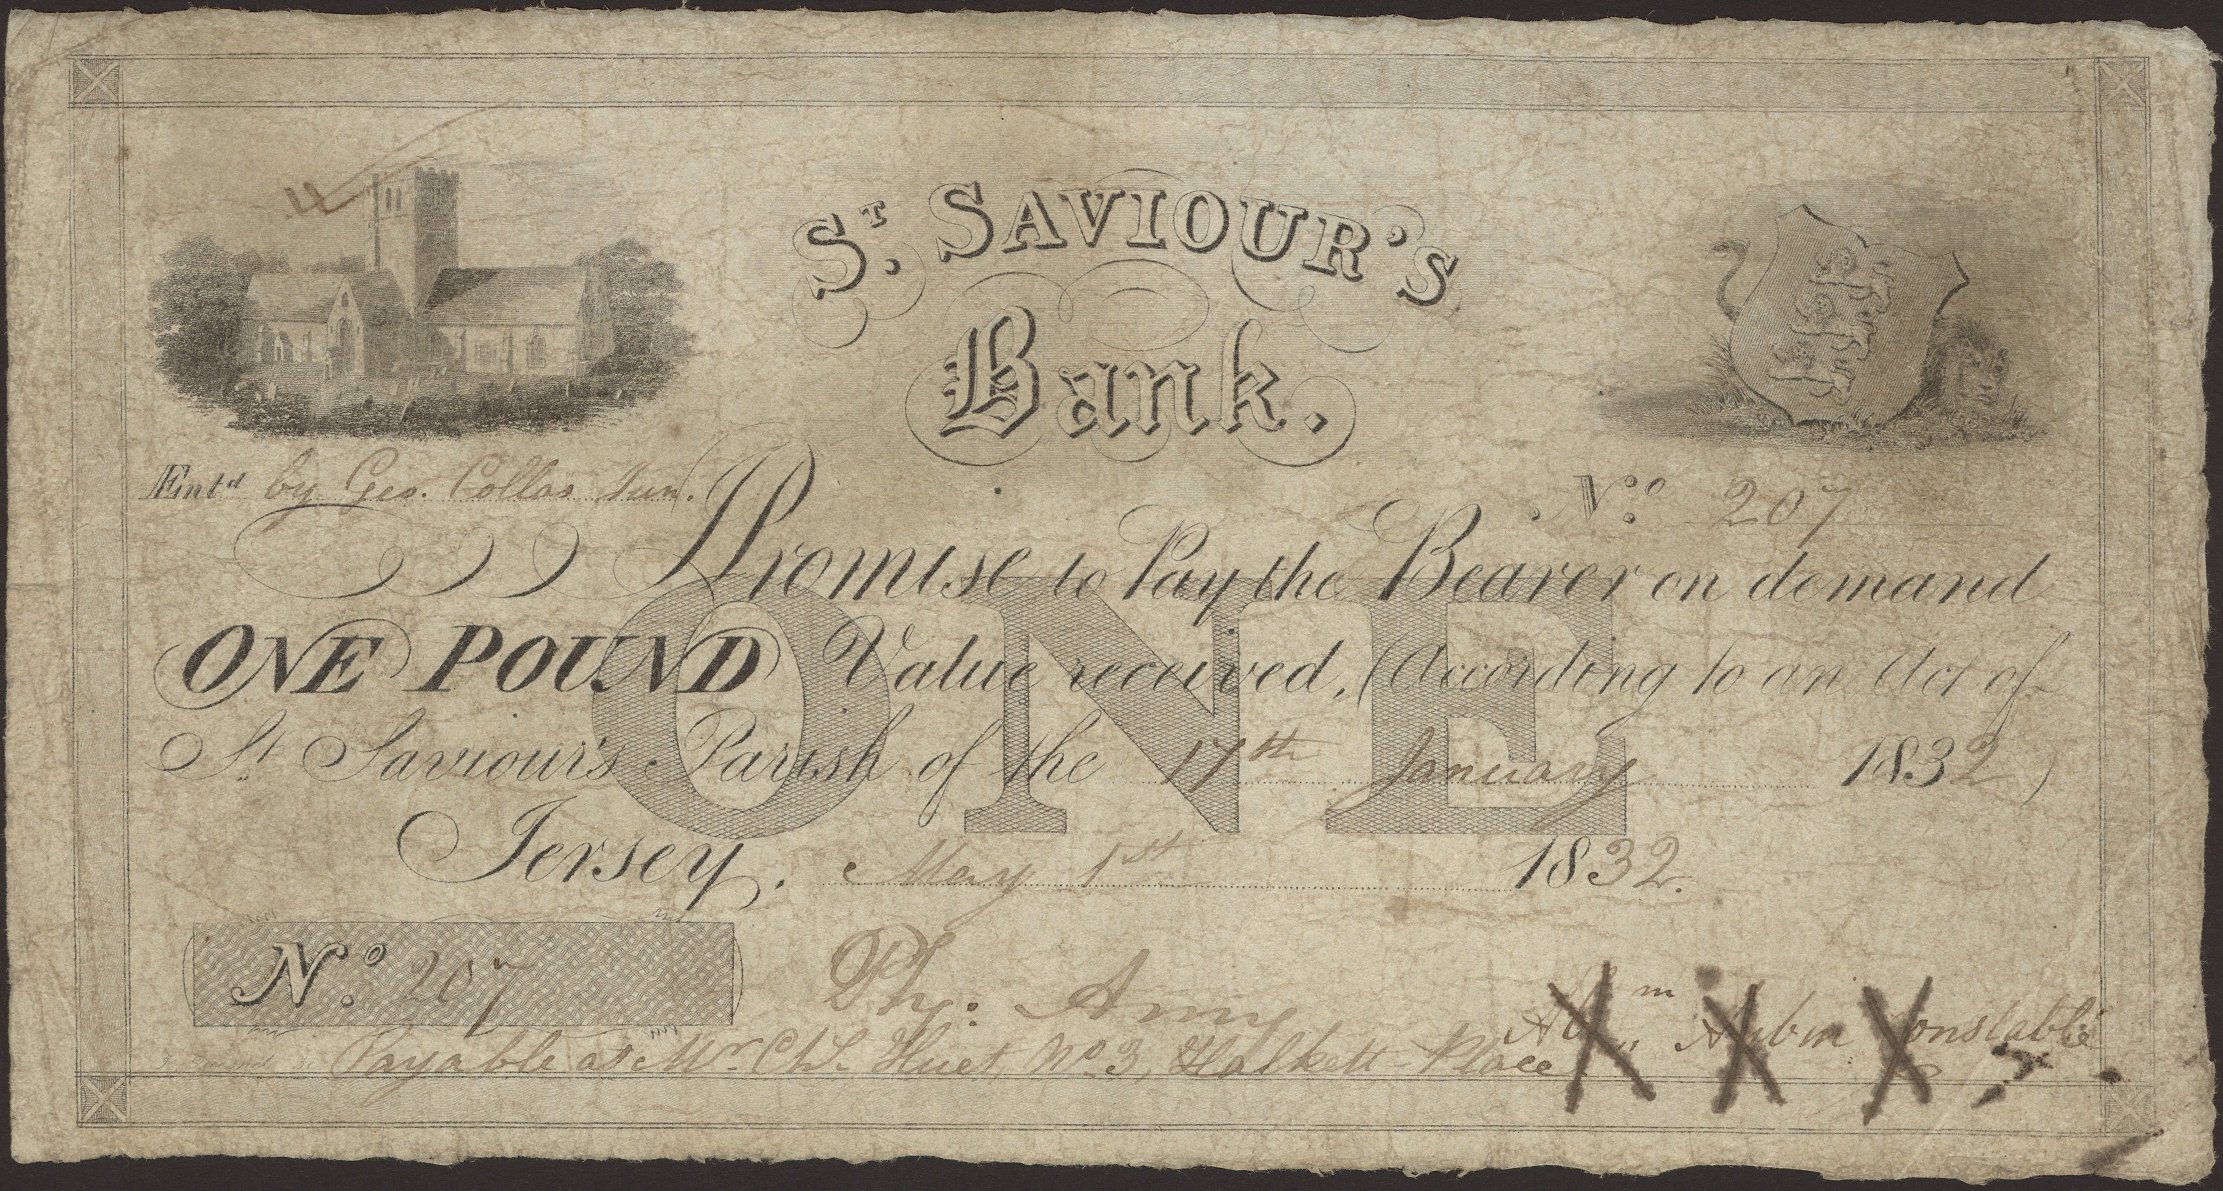 St. SAVIOUR'S
Bank.
Entd by Geo. Collas Jun.
No. 207
I Promise to Pay the Bearer on demand
ONE POUND Value received, (According to an Act of
St. Saviour's Parish of the 17th January 1832)
ONE
Jersey, May 1st 1832.
No. 207
Ph: Amy
Abm Aubin Constable
Payable at Mr. Chs. Huet, No. 3, Halkett Place